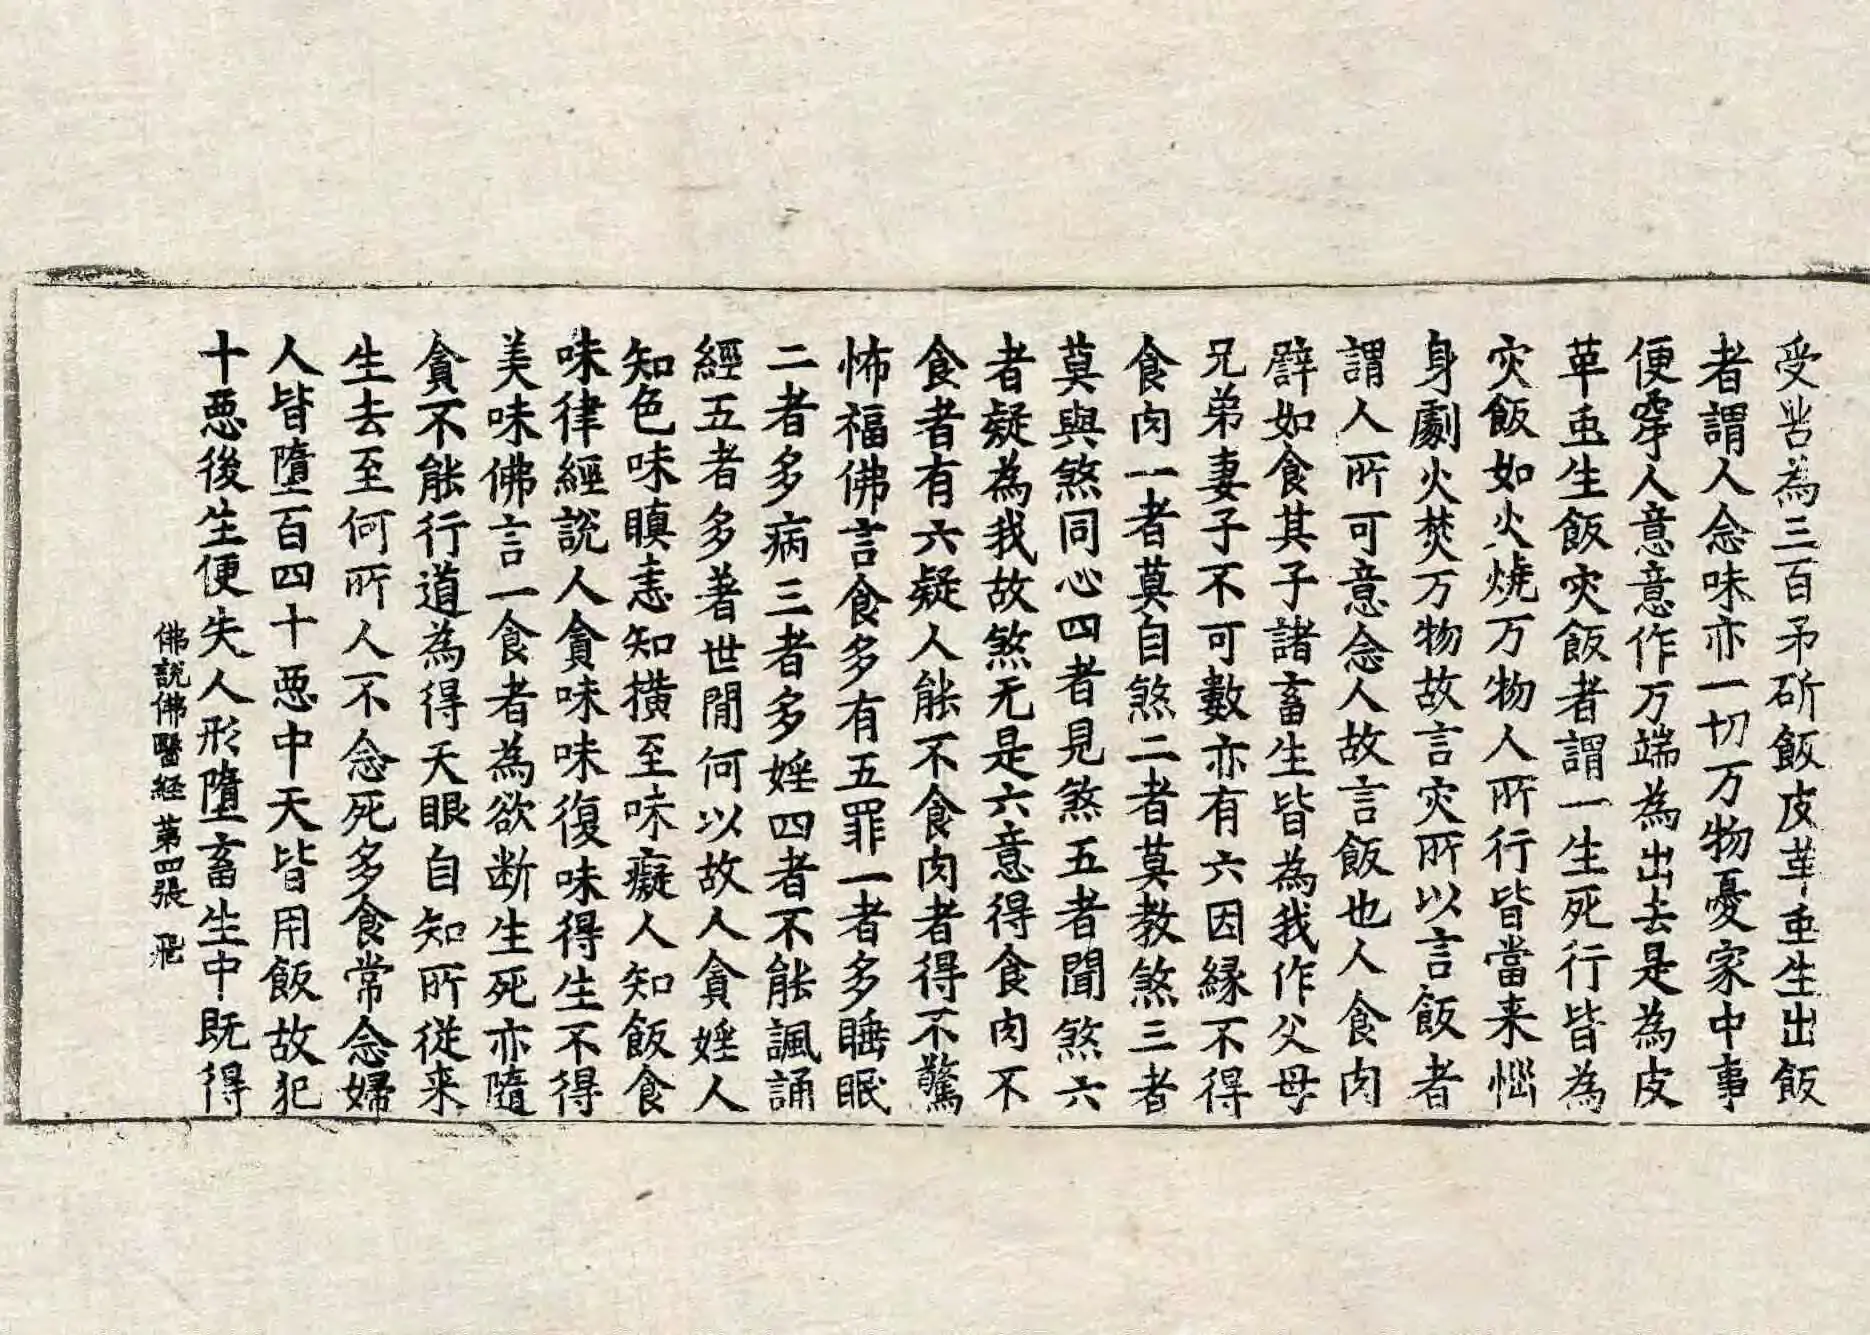 受苦為三百矛斫飯皮革𧈧生出飯
者謂人念味亦一切万物憂家中事
便穿人意意作万端為出去是為皮
革𧈧生飯灾飯者謂一生死行皆為
灾飯如火燒万物人所行皆當来惱
身劇火焚万物故言灾所以言飯者
謂人所可意念人故言飯也人食肉
譬如食其子諸畜生皆為我作父母
兄弟妻子不可數亦有六因緣不得
食肉一者莫自煞二者莫教煞三者
莫與煞同心四者見煞五者聞煞六
者疑為我故煞无是六意得食肉不
食者有六疑人能不食肉者得不驚
怖福佛言食多有五罪一者多睡眠
二者多病三者多婬四者不能諷誦
經五者多著世間何以故人貪婬人
知色味瞋恚知橫至味癡人知飯食
味律經說人貪味味復味得生不得
美味佛言一食者為欲断生死亦隨
貪不能行道為得天眼自知所従来
生去至何所人不念死多食常念婦
人皆墮百四十惡中夭皆用飯故犯
十惡後生便失人形墮畜生中既得
佛說佛醫経 第四張 飛